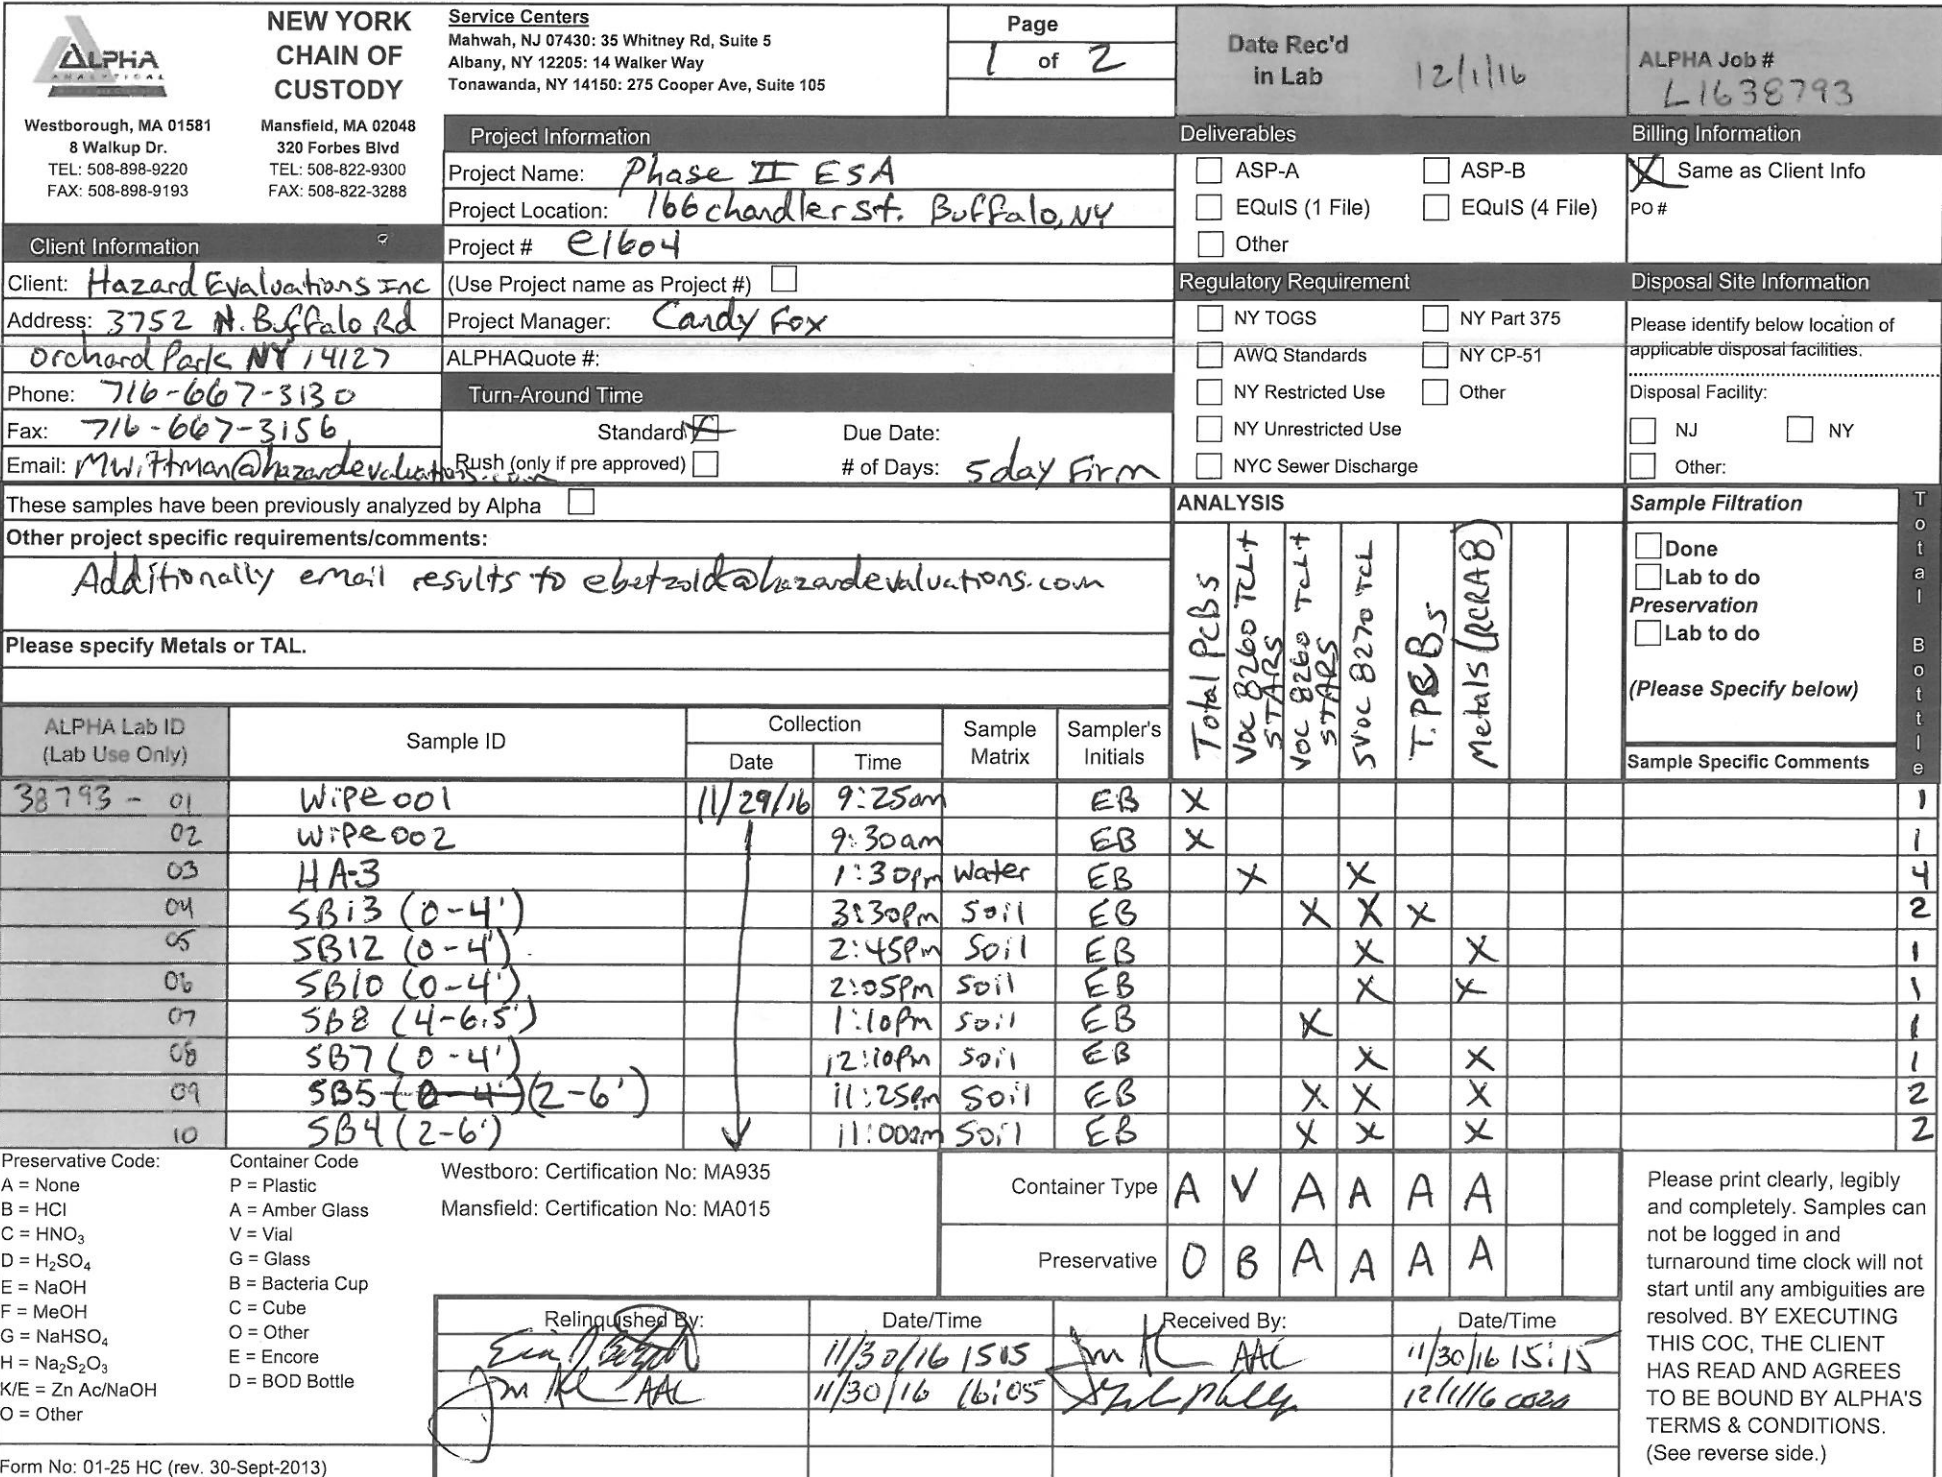 ALPHA
ANALYTICAL
Westborough, MA 01581
8 Walkup Dr.
TEL: 508-898-9220
FAX: 508-898-9193
NEW YORK
CHAIN OF
CUSTODY
Mansfield, MA 02048
320 Forbes Blvd
TEL: 508-822-9300
FAX: 508-822-3288
Service Centers
Mahwah, NJ 07430: 35 Whitney Rd, Suite 5
Albany, NY 12205: 14 Walker Way
Tonawanda, NY 14150: 275 Cooper Ave, Suite 105
Page
1 of 2
Date Rec'd
in Lab 12/1/16
ALPHA Job #
L1638793
Client Information
Client: Hazard Evaluations Inc
Address: 3752 N. Buffalo Rd
Orchard Park NY 14127
Phone: 716-667-3130
Fax: 716-667-3156
Email: Mwittman@hazardevaluations.com
Project Information
Project Name: Phase II ESA
Project Location: 166 chandler St. Buffalo, NY
Project # e1604
(Use Project name as Project #)
Project Manager: Candy Fox
ALPHAQuote #:
Turn-Around Time
Standard X Due Date:
Rush (only if pre approved) # of Days: 5 day Firm
Deliverables
ASP-A ASP-B
EQuIS (1 File) EQuIS (4 File)
Other
Regulatory Requirement
NY TOGS NY Part 375
AWQ Standards NY CP-51
NY Restricted Use Other
NY Unrestricted Use
NYC Sewer Discharge
Billing Information
X Same as Client Info
PO #
Disposal Site Information
Please identify below location of
applicable disposal facilities.
Disposal Facility:
NJ NY
Other:
These samples have been previously analyzed by Alpha
Other project specific requirements/comments:
Additionally email results to ebetzold@hazardevaluations.com
Please specify Metals or TAL.
ANALYSIS
Total PCBs
VOC 8260 TCL+
STARS
VOC 8260 TCL+
STARS
SVOC 8270 TCL
T. PCBs
Metals (RCRA8)
Sample Filtration
Done
Lab to do
Preservation
Lab to do
(Please Specify below)
Sample Specific Comments
Total Bottle
ALPHA Lab ID
(Lab Use Only)
Sample ID
Collection
Date Time
Sample
Matrix
Sampler's
Initials
38793 - 01 Wipe 001 11/29/16 9:25am EB X 1
02 wipe 002 9:30am EB X 1
03 HA-3 1:30pm Water EB X X 4
04 SB13 (0-4') 3:30pm Soil EB X X X 2
05 SB12 (0-4') 2:45pm Soil EB X X 1
06 SB10 (0-4') 2:05pm Soil EB X X 1
07 SB8 (4-6.5') 1:10pm Soil EB X 1
08 SB7 (0-4') 12:10pm Soil EB X X 1
09 SB5 (0-4') (2-6') 11:25pm Soil EB X X X 2
10 SB4 (2-6') 11:00am Soil EB X X X 2
Preservative Code:
A = None
B = HCl
C = HNO3
D = H2SO4
E = NaOH
F = MeOH
G = NaHSO4
H = Na2S2O3
K/E = Zn Ac/NaOH
O = Other
Container Code
P = Plastic
A = Amber Glass
V = Vial
G = Glass
B = Bacteria Cup
C = Cube
O = Other
E = Encore
D = BOD Bottle
Westboro: Certification No: MA935
Mansfield: Certification No: MA015
Container Type A V A A A A
Preservative O B A A A A
Relinquished By: Date/Time Received By: Date/Time
11/30/16 1505 AAC 11/30/16 15:15
AAC 11/30/16 16:05 12/1/16 0020
Please print clearly, legibly
and completely. Samples can
not be logged in and
turnaround time clock will not
start until any ambiguities are
resolved. BY EXECUTING
THIS COC, THE CLIENT
HAS READ AND AGREES
TO BE BOUND BY ALPHA'S
TERMS & CONDITIONS.
(See reverse side.)
Form No: 01-25 HC (rev. 30-Sept-2013)